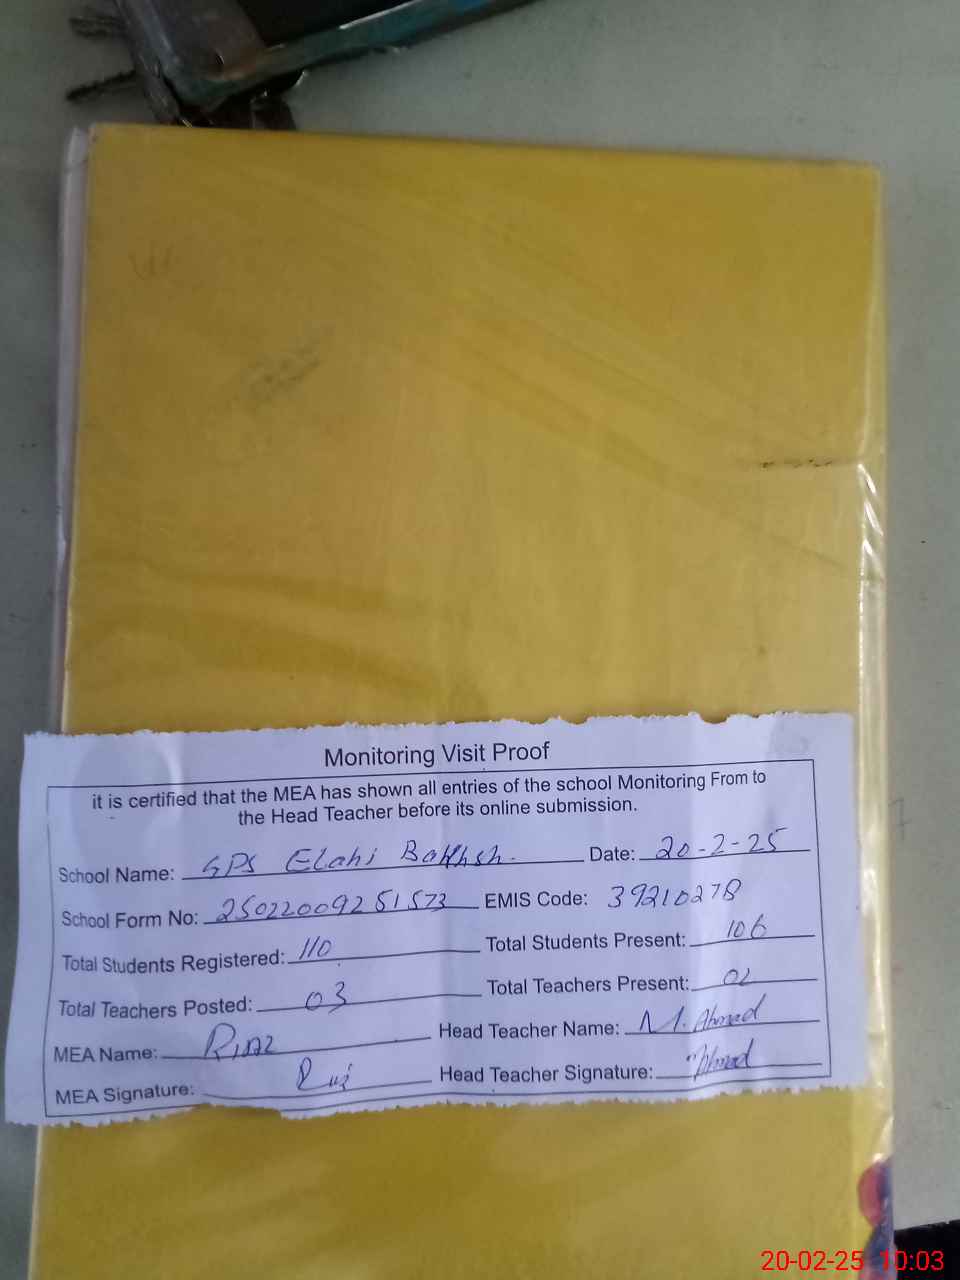 Monitoring Visit Proof
it is certified that the MEA has shown all entries of the school Monitoring From to
the Head Teacher before its online submission.
School Name: GPS Elahi Bakhsh. Date: 20-2-25
School Form No: 25022009251573 EMIS Code: 39210278
Total Students Registered: 110 Total Students Present: 106
Total Teachers Posted: 03 Total Teachers Present: 02
MEA Name: Riaz Head Teacher Name: M. Ahmad
MEA Signature: Head Teacher Signature: Ahmad
20-02-25 10:03